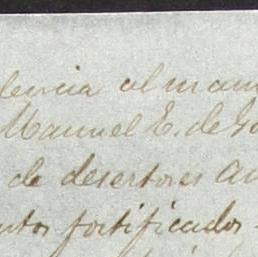 dencia al man
Manuel E. de Go
de desertores au
ntos fortificados